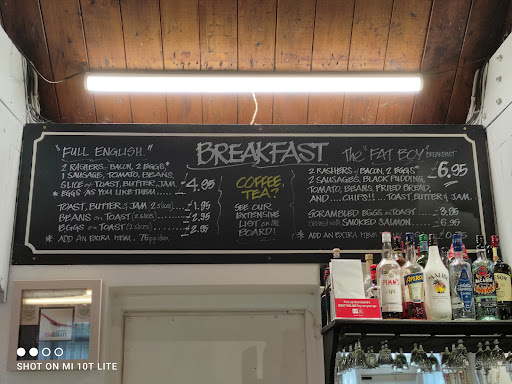 BREAKFAST
"FULL ENGLISH"
2 RASHERS of BACON, 2 EGGS,*
1 SAUSAGE, TOMATO, BEANS,
SLICE of TOAST, BUTTER, JAM. -4.95
* EGGS AS YOU LIKE THEM
TOAST, BUTTER & JAM 2 slices -1.95
BEANS on TOAST (2 slices) -2.95
EGGS on TOAST (2 slices) -2.95
* ADD AN EXTRA ITEM. 75p
COFFEE,
TEA?
SEE OUR
EXTENSIVE
LIST on the
BOARD!
The "FAT BOY" BREAKFAST
2 RASHERS of BACON, 2 EGGS* -6.95
2 SAUSAGES, BLACK PUDDING,
TOMATO, BEANS, FRIED BREAD,
AND.....CHIPS!!.. TOAST, BUTTER & JAM.
SCRAMBLED EGGS on TOAST -3.95
SMOKED SALMON -6.95
* ADD AN EXTRA ITEM
PIMM'S
APEROL
MALIBU
SHOT ON MI 10T LITE